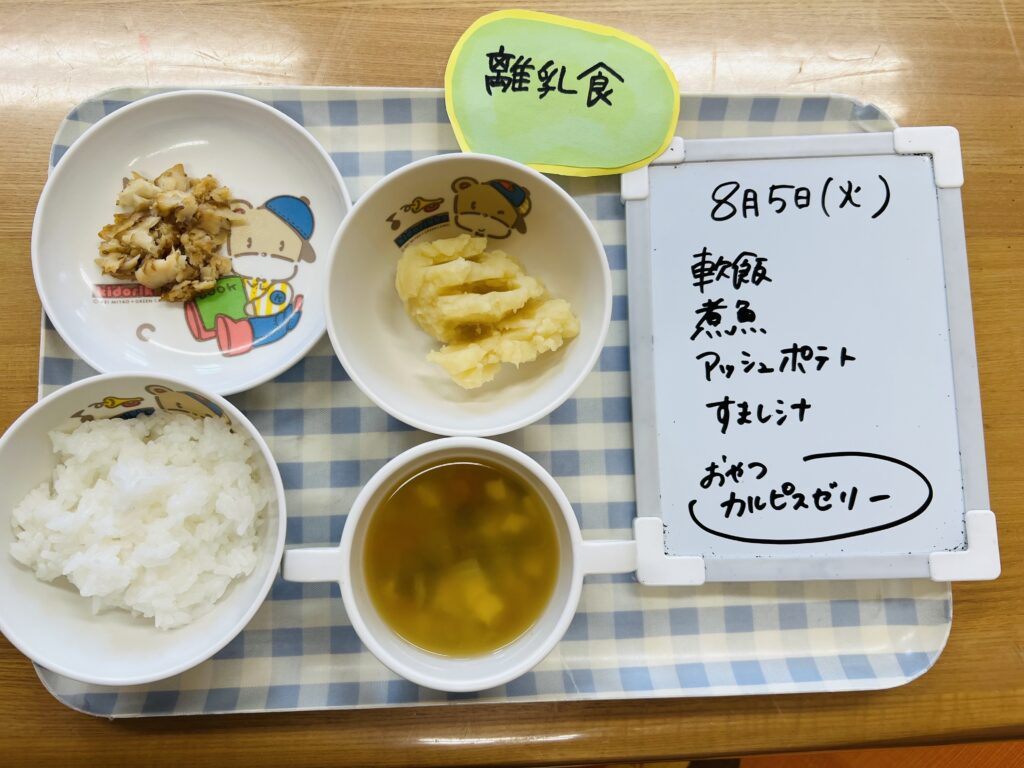 離乳食
8月5日(火)
軟飯
煮魚
マッシュポテト
すまし汁
おやつ
カルピスゼリー